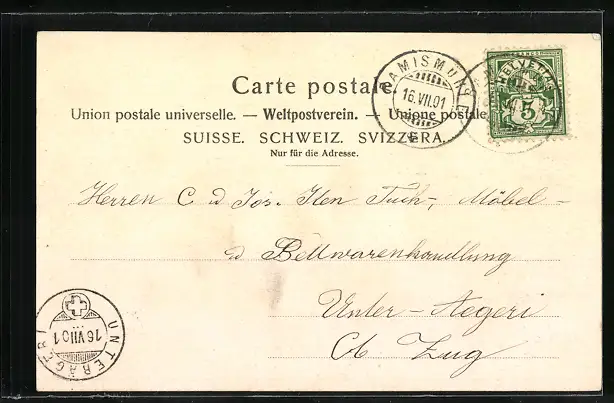 Carte postale.
Union postale universelle. — Weltpostverein. — Unione postale
SUISSE. SCHWEIZ. SVIZZERA.
Nur für die Adresse.
RAMISMÜHLE
16.VII.01
HELVETIA
5
Herren C u Jos. Iten Tuch-, Möbel-
u Bettwarenhandlung
Unter-Aegeri
Ct Zug
UNTERÄGERI
16 VII 01